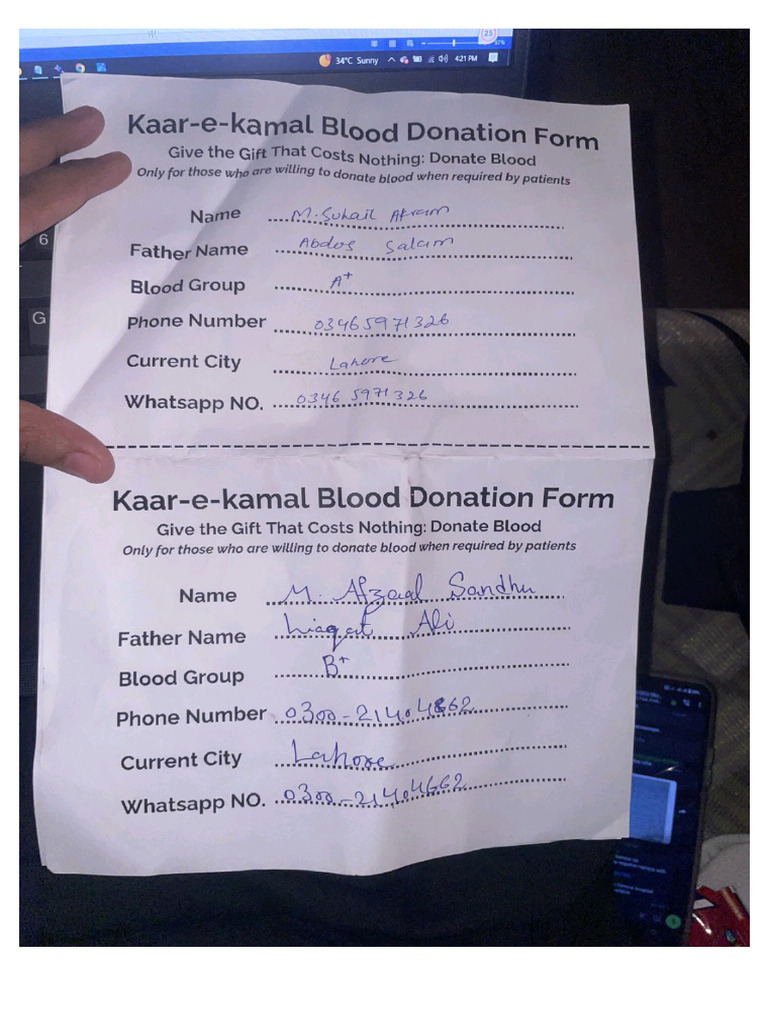 34°C Sunny 4:21 PM
Kaar-e-kamal Blood Donation Form
Give the Gift That Costs Nothing: Donate Blood
Only for those who are willing to donate blood when required by patients
Name M. Suhail Akram
Father Name Abdos Salam
Blood Group A+
Phone Number 03465971326
Current City Lahore
Whatsapp NO. 0346 5971326
Kaar-e-kamal Blood Donation Form
Give the Gift That Costs Nothing: Donate Blood
Only for those who are willing to donate blood when required by patients
Name M. Afzaal Sandhu
Father Name Liaqat Ali
Blood Group B+
Phone Number 0300-2140
Current City Lahore
Whatsapp NO. 0300-21404662
6
G